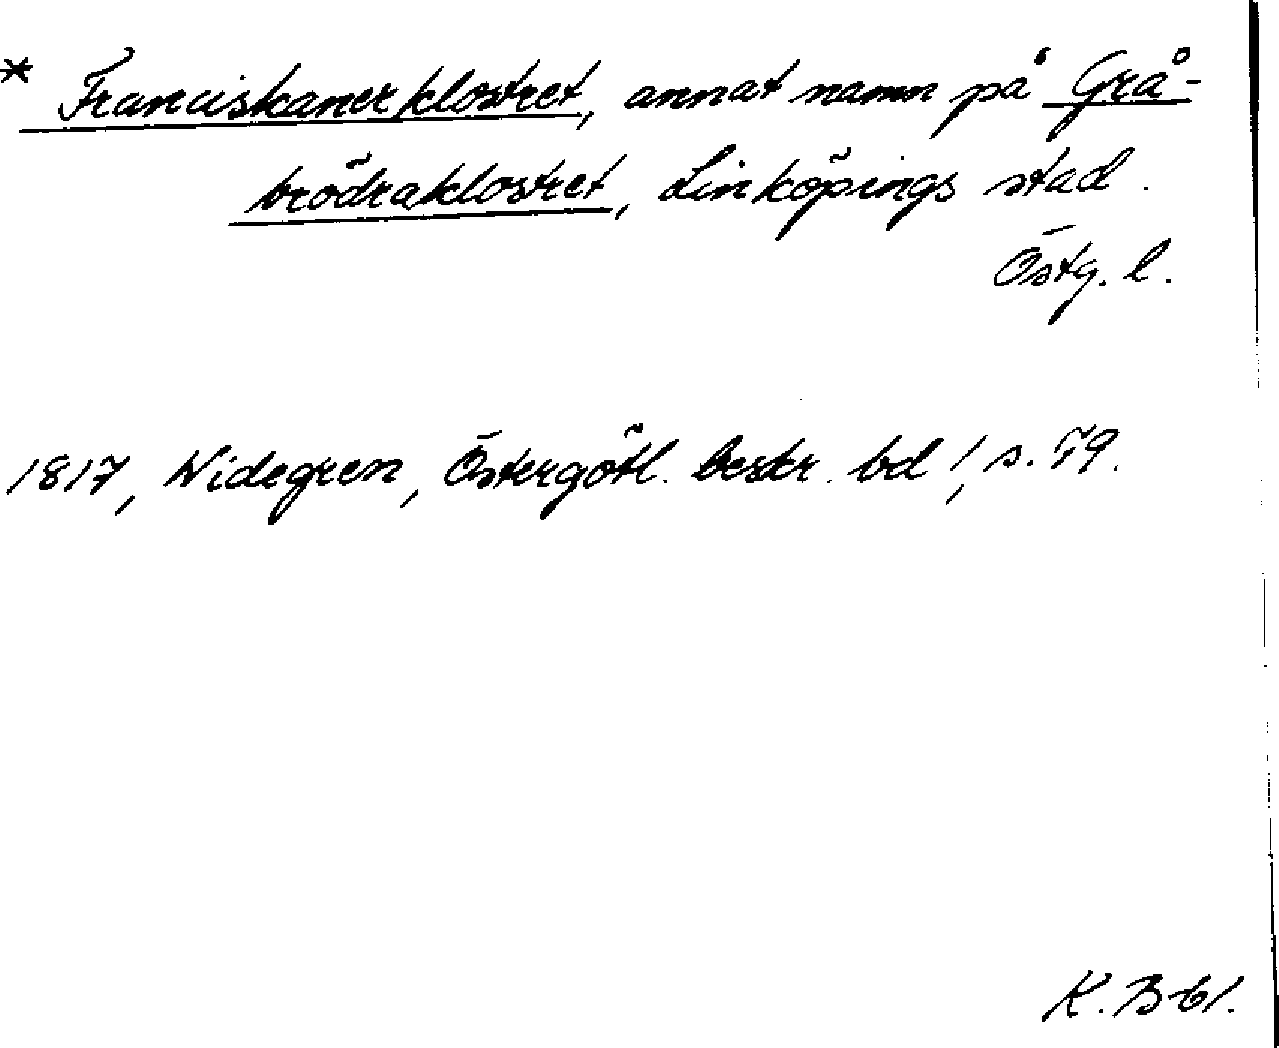 * Franciskanerklostret, annat namn på Grå-
brödraklostret, Linköpings stad.
Östg. l.
1817, Widegren, Östergötl. beskr. bd 1, s. 79.
K. B-61.